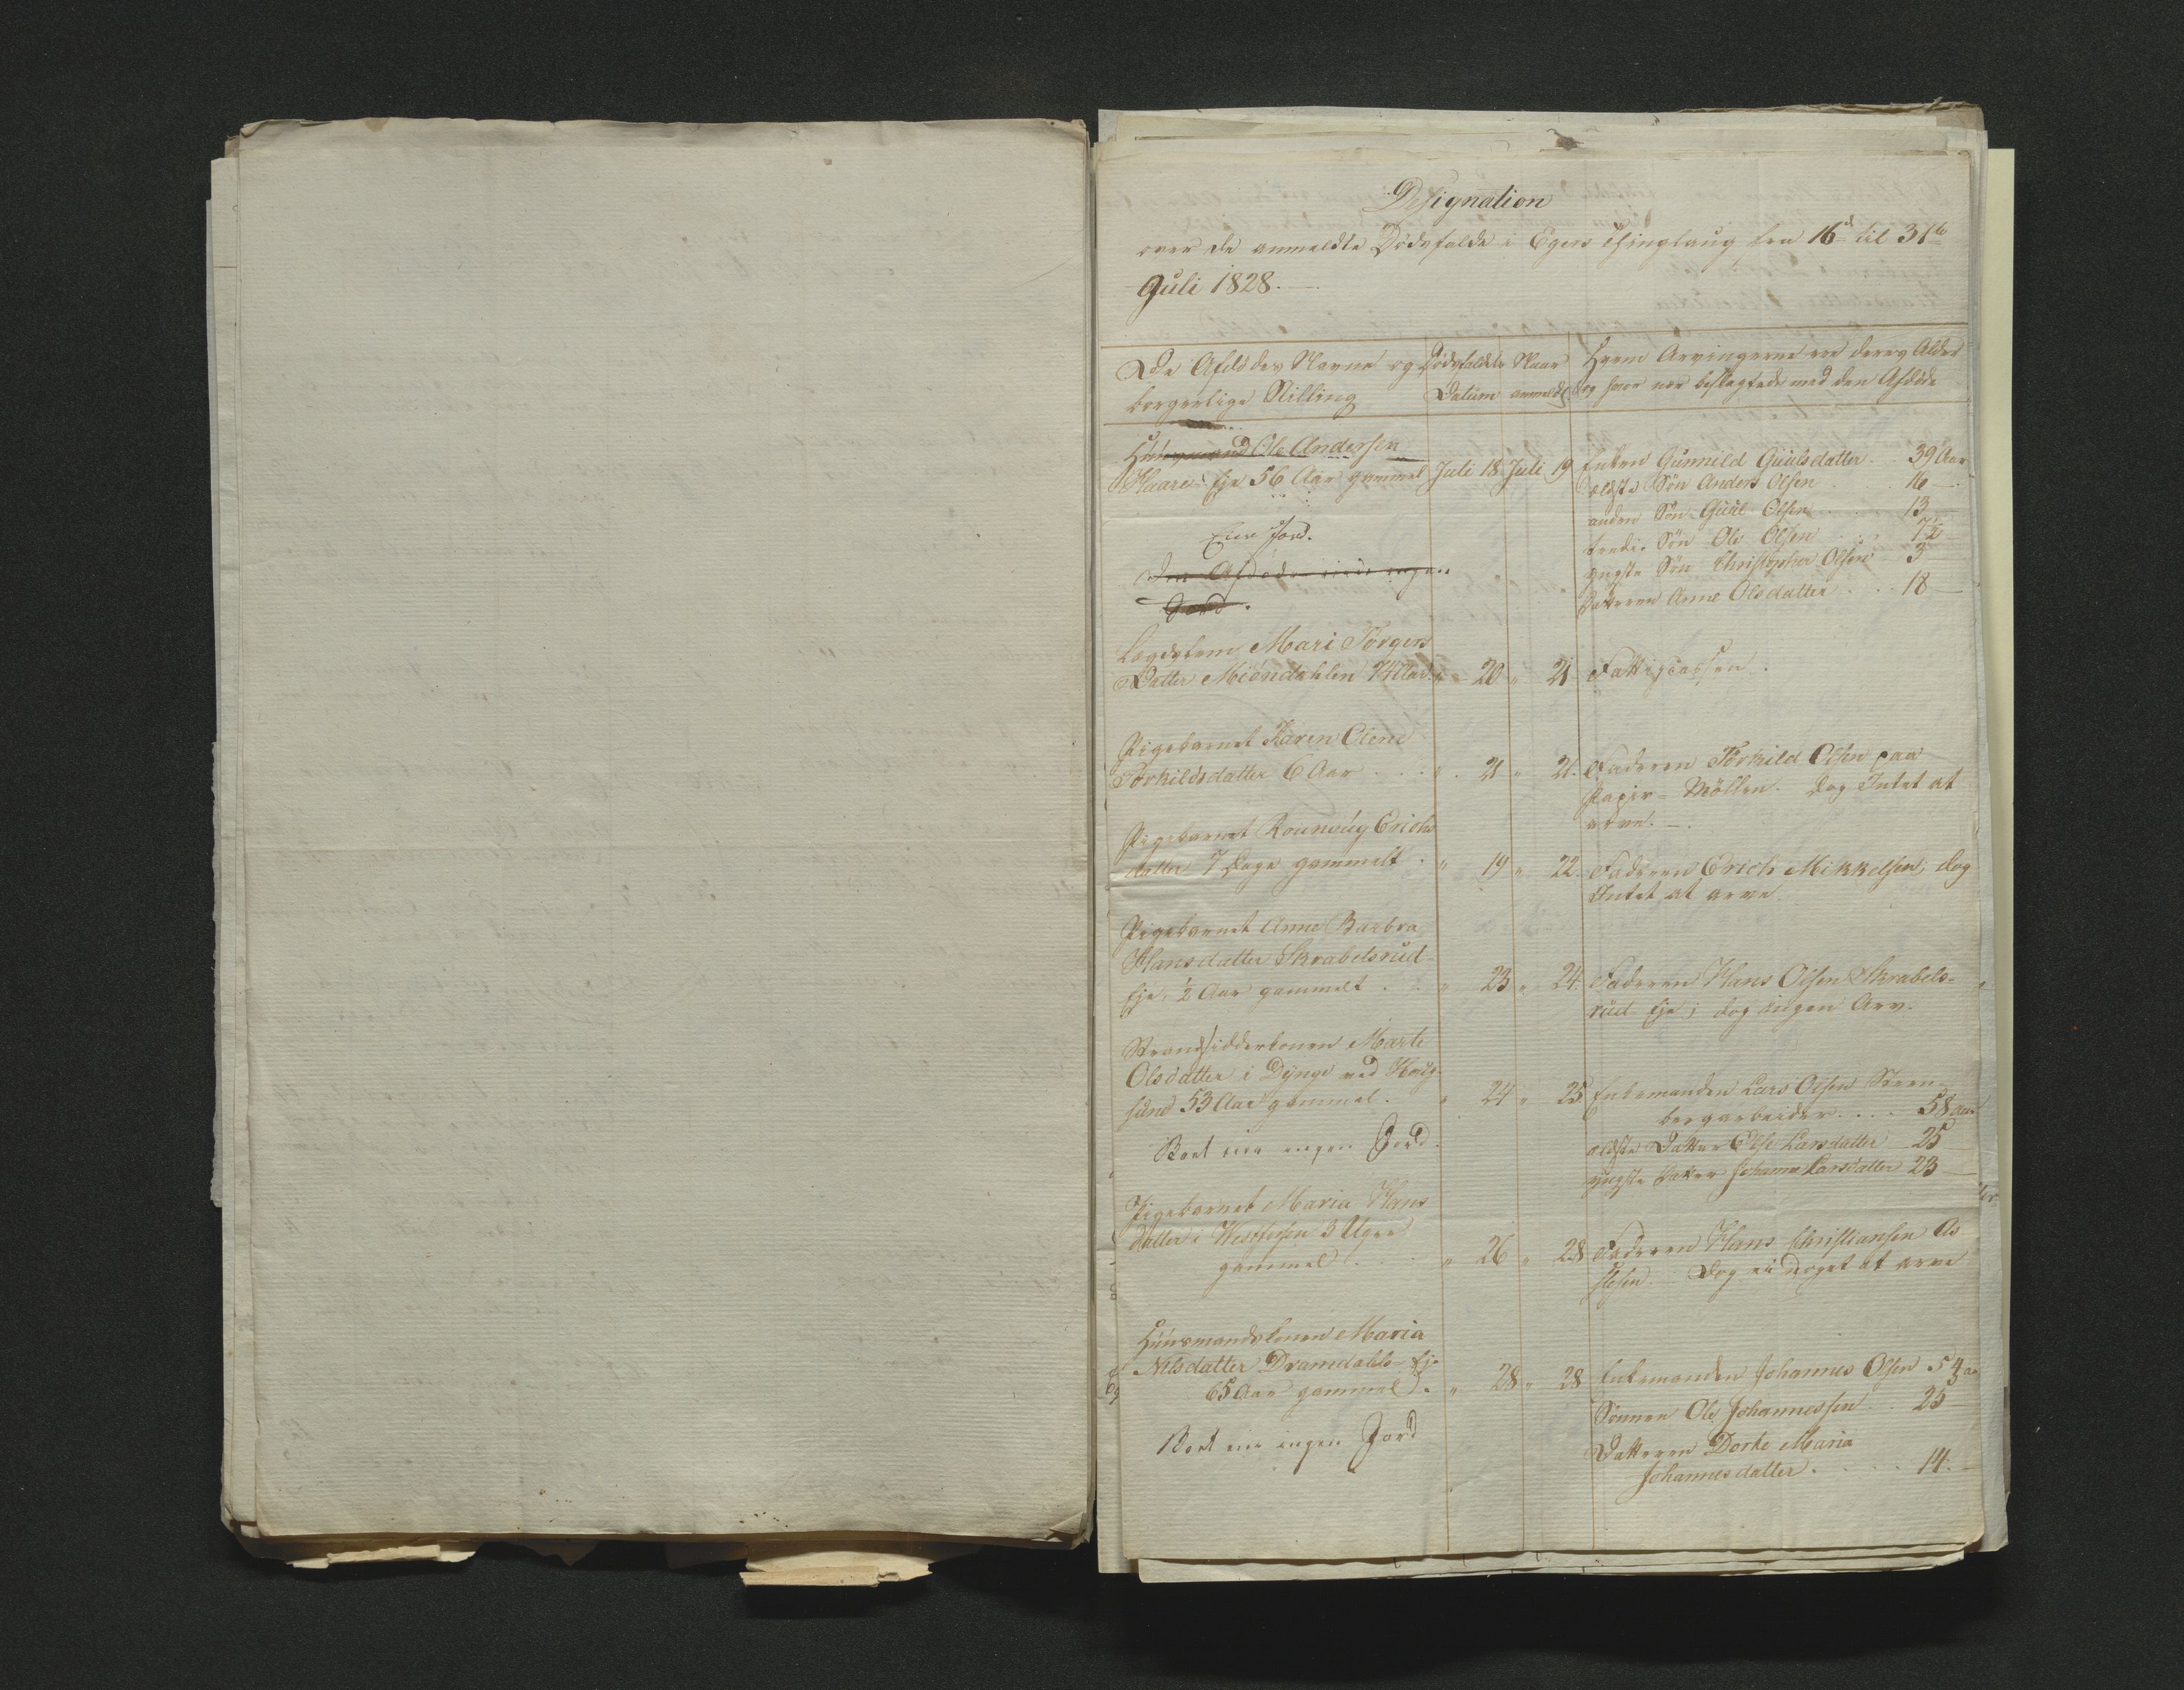 Designation
over de anmeldte Dødsfalde i Egers Thinglaug fra 16d til 31te
Juli 1828.
De Afdødes Navne og
borgerlige Stilling
Dødsfaldets
Datum
Naar
anmeldt
Hvem Arvingerne ere deres Alder
og hvor nær beslægtede med den Afdøde
Huusmand Ole Andersen
Haare Eje 56 Aar gammel Juli 18 Juli 19 Enken Gunnild Guulsdatter 39 Aar
ældste Søn Anders Olsen 16
anden Søn Guul Olsen 13
Eier Jord.
tredie Søn Ole Olsen 7½
Den Afdøde eiede ingen
yngste Søn Christopher Olsen 3
Jord.
Datteren Anne Olsdatter 18
Lægdslem Mari Jørgens
Datter Miøndahlen 74 Aar " 20 " 21 Fattigcassen.
Pigebarnet Karen Olene
Torkildsdatter 6 Aar " 21 " 21. Faderen Torkild Olsen paa
Papir-Møllen. dog Intet at
arve.
Pigebarnet Rounaug Erichs
datter 7 Dage gammelt " 19 " 22. Faderen Erich Mikkelsen, dog
Intet at arve.
Pigebarnet Anne Barbra
Hansdatter Skrabelsrud
Eje, ½ Aar gammelt " 23 " 24. Faderen Hans Olsen Skrabels-
rud Eje; dog ingen Arv.
Strandsidderkonen Marte
Olsdatter i Dynge ved Houg-
sund 53 Aar gammel. " 24 " 25. Enkemanden Lars Olsen Steen-
bergarbeider 58 aar
Boet eier ingen Jord.
ældste Datter Else Larsdatter 25
yngste Datter Johanne Larsdatter 23
Pigebarnet Maria Hans
datter i Westfossen 3 Uger
gammel " 26 " 28 Faderen Hans Christiansen
Dog ei noget at arve
Huusmandskonen Maria
Nilsdatter Dramdahls-Eje
65 Aar gammel. " 28 " 28 Enkemanden Johannes Olsen 54 aar
Sønnen Ole Johannessen 25
Boet eier ingen Jord
Datteren Dorte Maria
Johannesdatter 14.